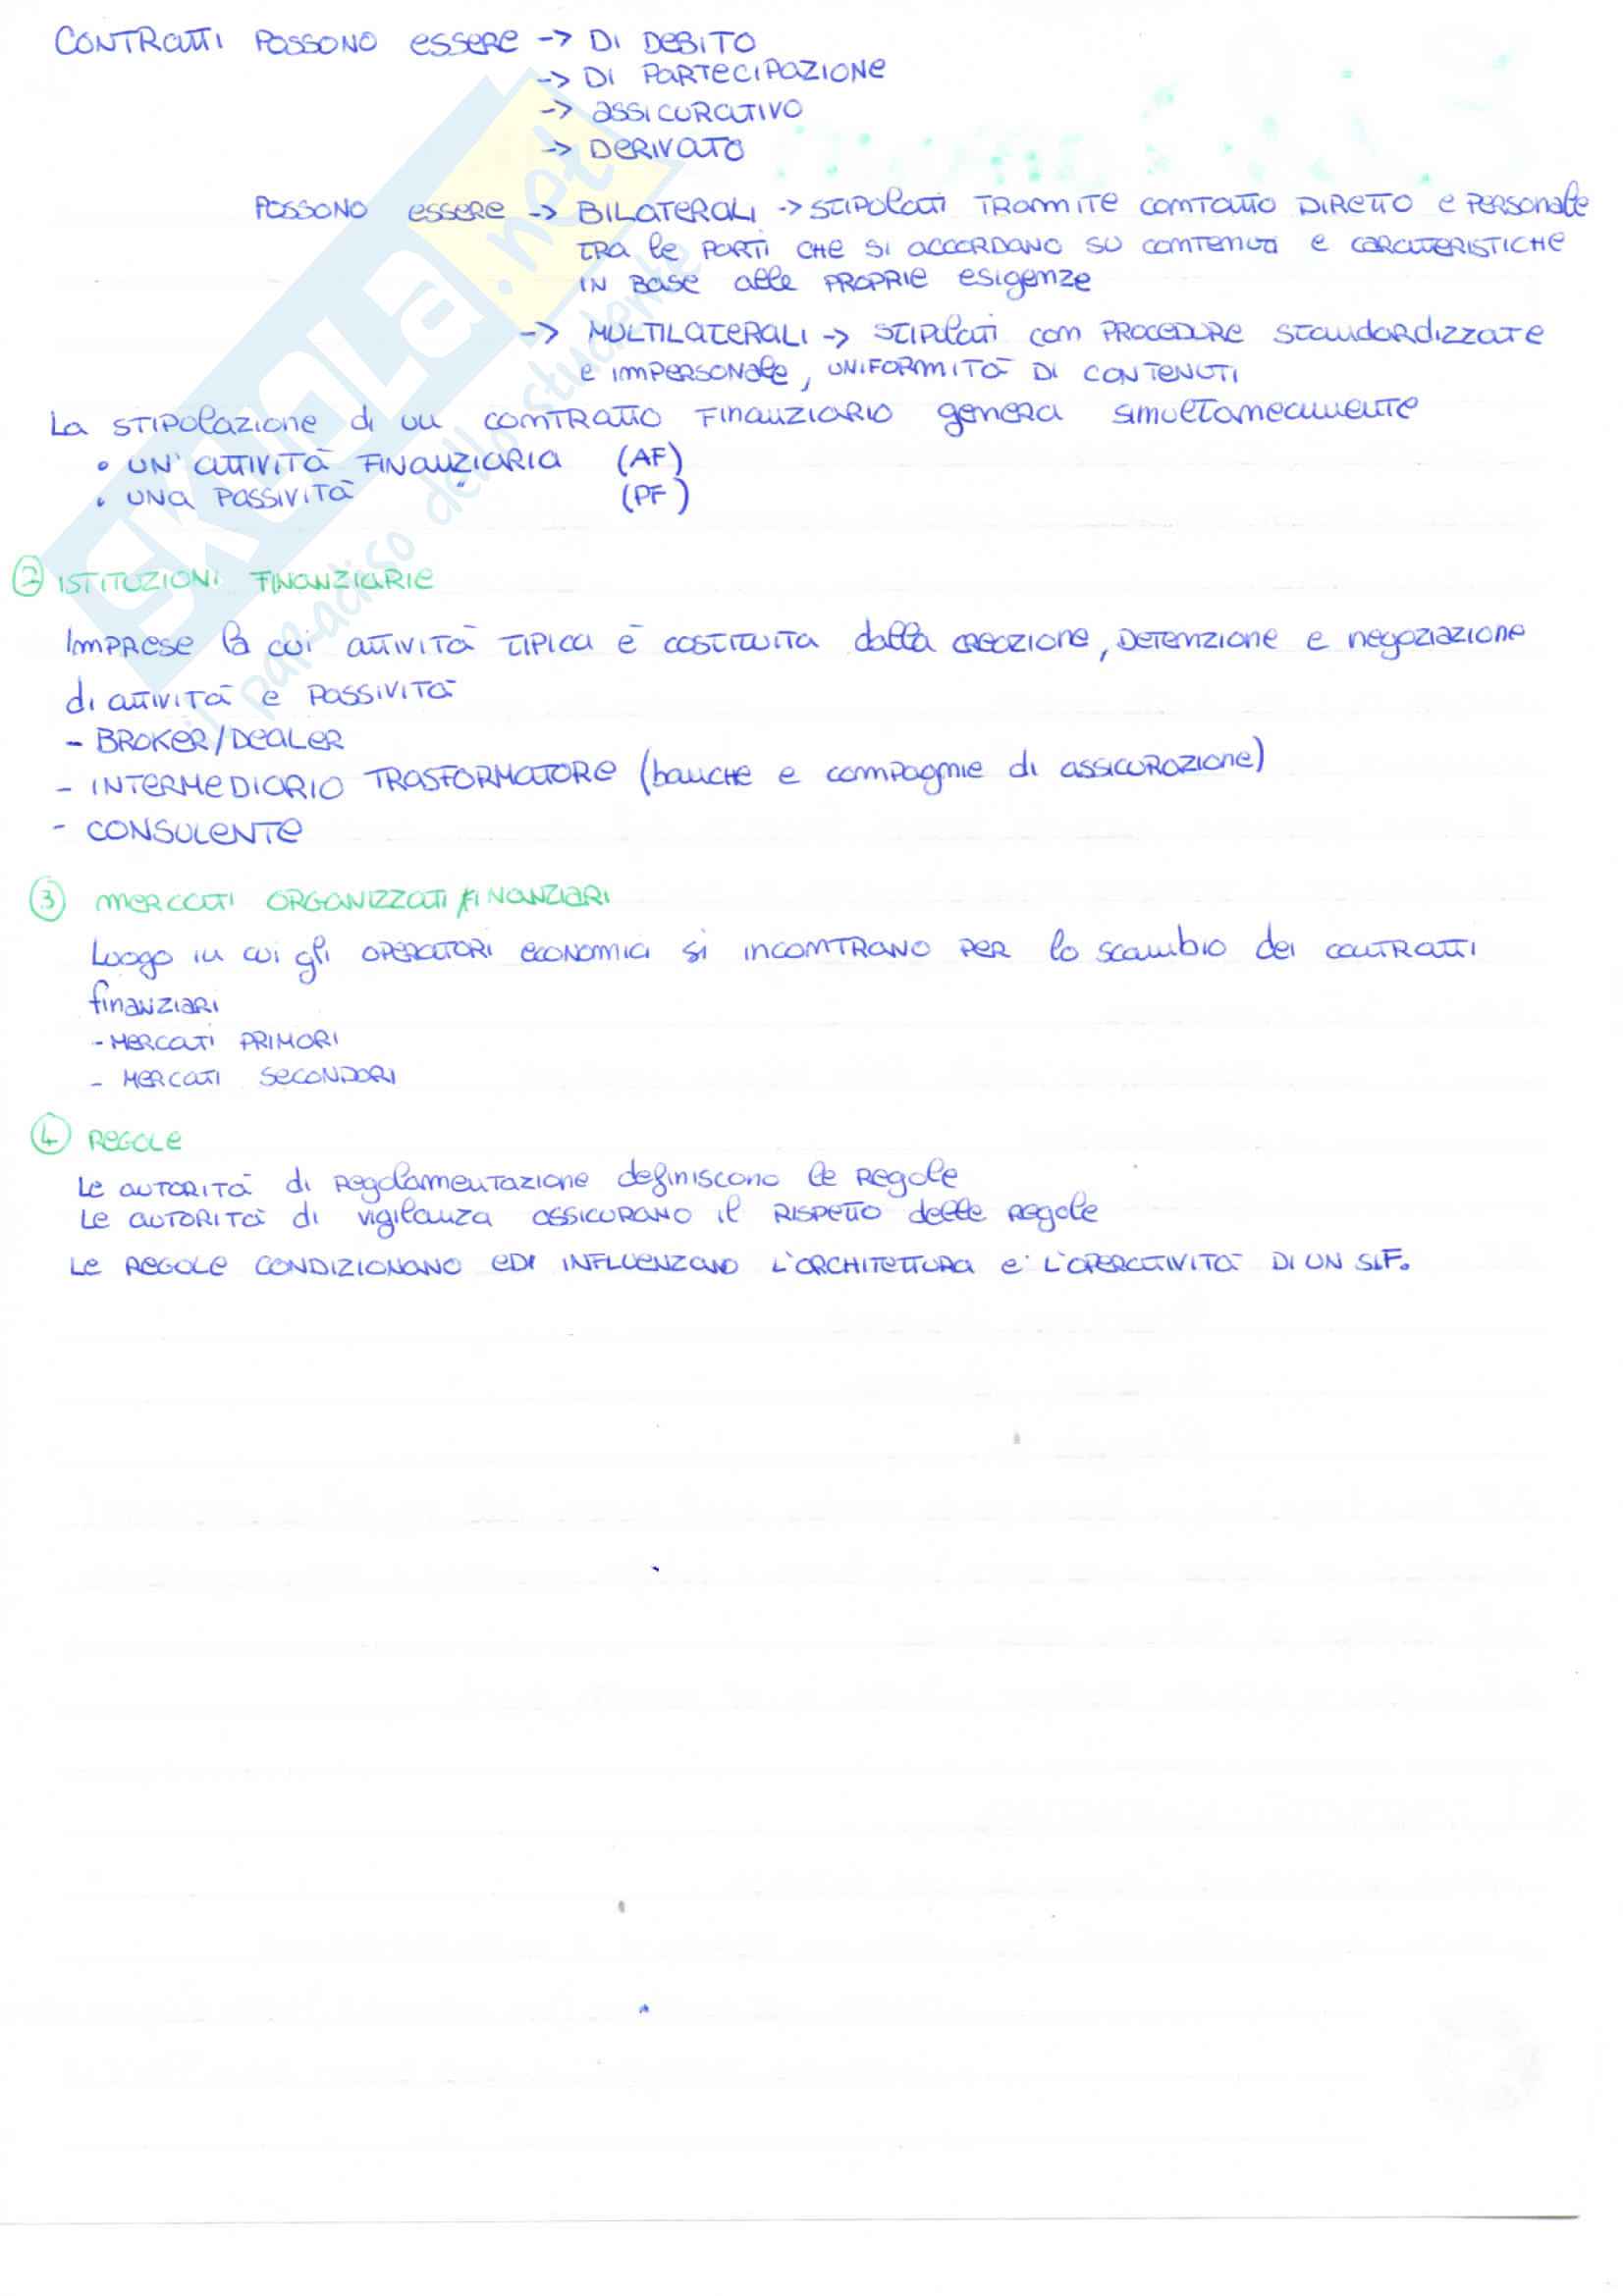 CONTRATTI POSSONO ESSERE -> DI DEBITO
-> DI PARTECIPAZIONE
-> ASSICURATIVO
-> DERIVATO
POSSONO ESSERE -> BILATERALI -> STIPOLATI TRAMITE CONTATTO DIRETTO E PERSONALE
TRA LE PARTI CHE SI ACCORDANO SU CONTENUTI E CARATTERISTICHE
IN BASE ALLE PROPRIE ESIGENZE
-> MULTILATERALI -> STIPULATI CON PROCEDURE STANDARDIZZATE
E IMPERSONALE, UNIFORMITÀ DI CONTENUTI
La STIPOLAZIONE di un CONTRATTO FINANZIARIO genera simultaneamente
• UN'ATTIVITÀ FINANZIARIA (AF)
• UNA PASSIVITÀ " (PF)
② ISTITUZIONI FINANZIARIE
IMPRESE la cui ATTIVITÀ TIPICA È COSTITUITA dalla CREAZIONE, DETENZIONE e negoziazione
di ATTIVITÀ e PASSIVITÀ
- BROKER/DEALER
- INTERMEDIARIO TRASFORMATORE (banche e compagnie di assicurazione)
- CONSULENTE
③ MERCATI ORGANIZZATI FINANZIARI
Luogo in cui gli OPERATORI ECONOMICI si INCONTRANO PER lo scambio dei CONTRATTI
finanziari
- MERCATI PRIMARI
- MERCATI SECONDARI
④ REGOLE
Le AUTORITÀ di Regolamentazione definiscono le Regole
Le AUTORITÀ di vigilanza ASSICURANO il RISPETTO delle Regole
Le REGOLE CONDIZIONANO ED INFLUENZANO L'ARCHITETTURA e L'OPERATIVITÀ DI UN S.F.
SKUOLA.net
il paradiso dello studente